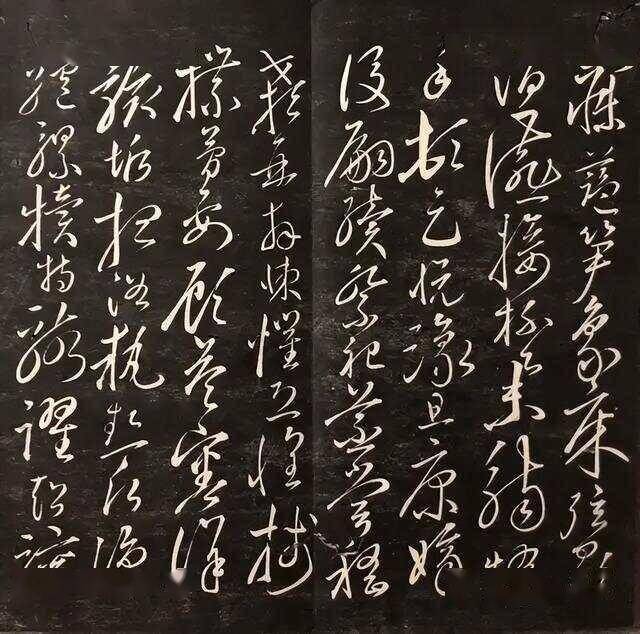 寐藍笋象床弦歌
酒讌接杯舉觴矯
手頓足悦豫且康嫡
後嗣續祭祀蒸嘗稽
顙再拜悚懼恐惶牋
牒簡要顧答審詳
骸垢想浴執熱願涼
驢騾犢特駭躍超驤